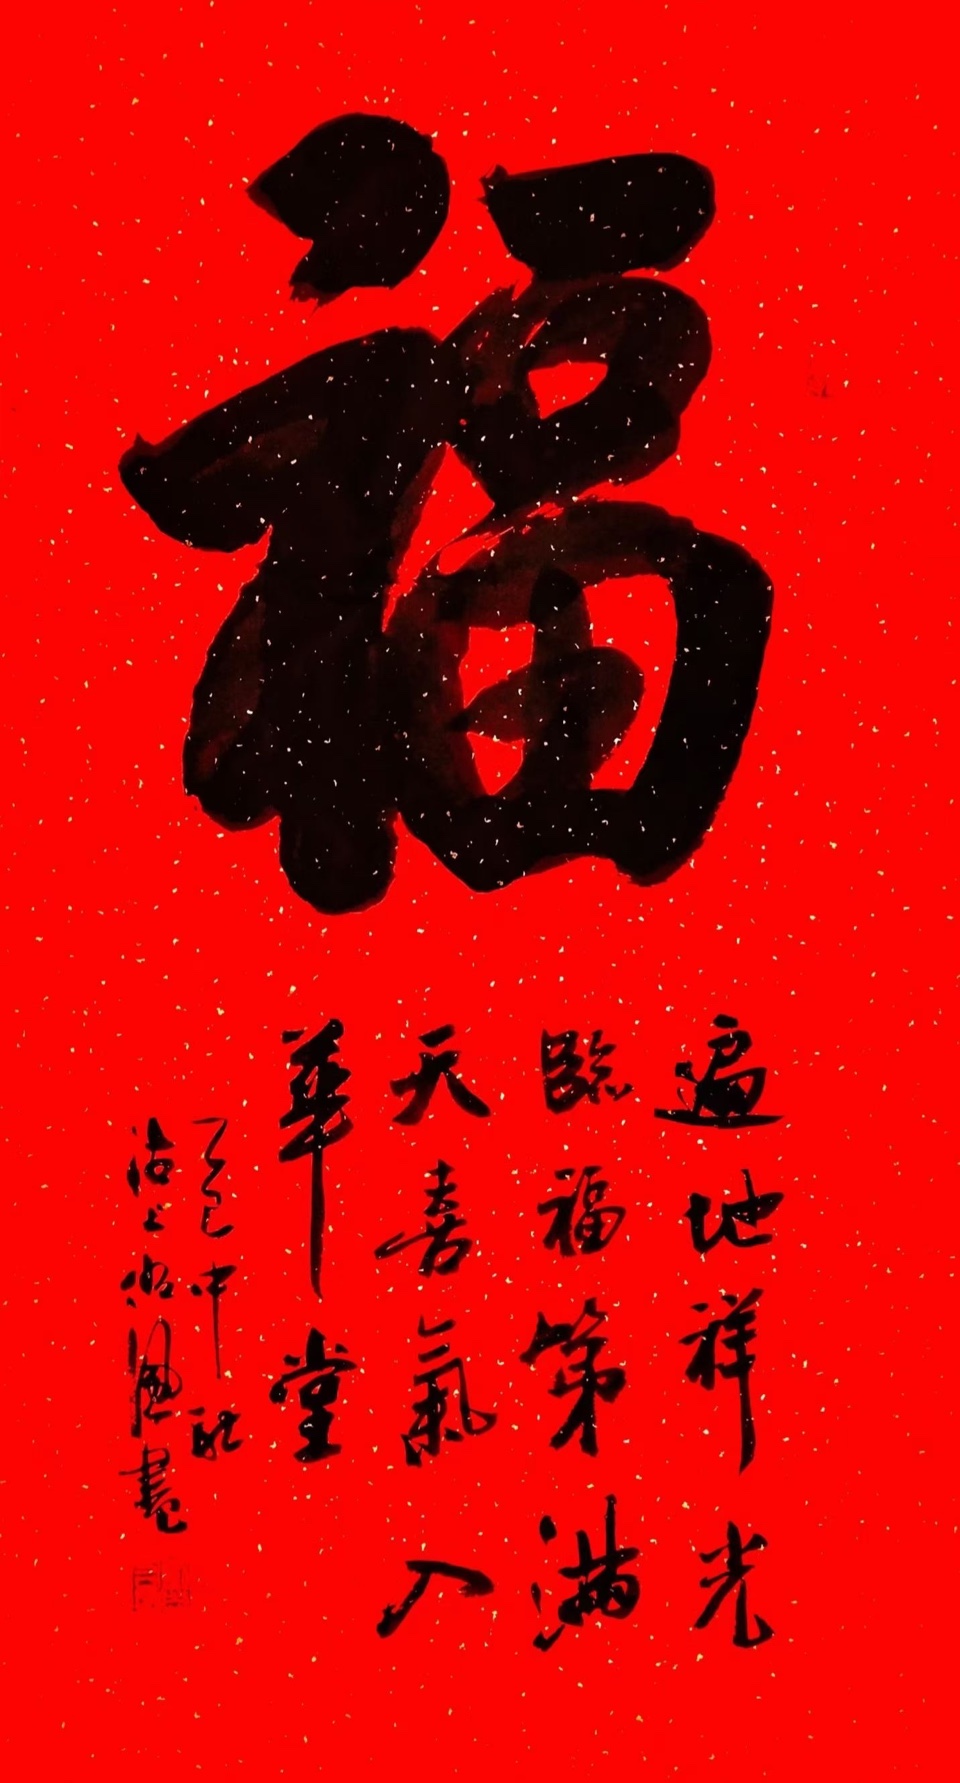 福
遍地祥光
臨福第满
天喜氣入
華堂
乙巳中秋
沽上 風書